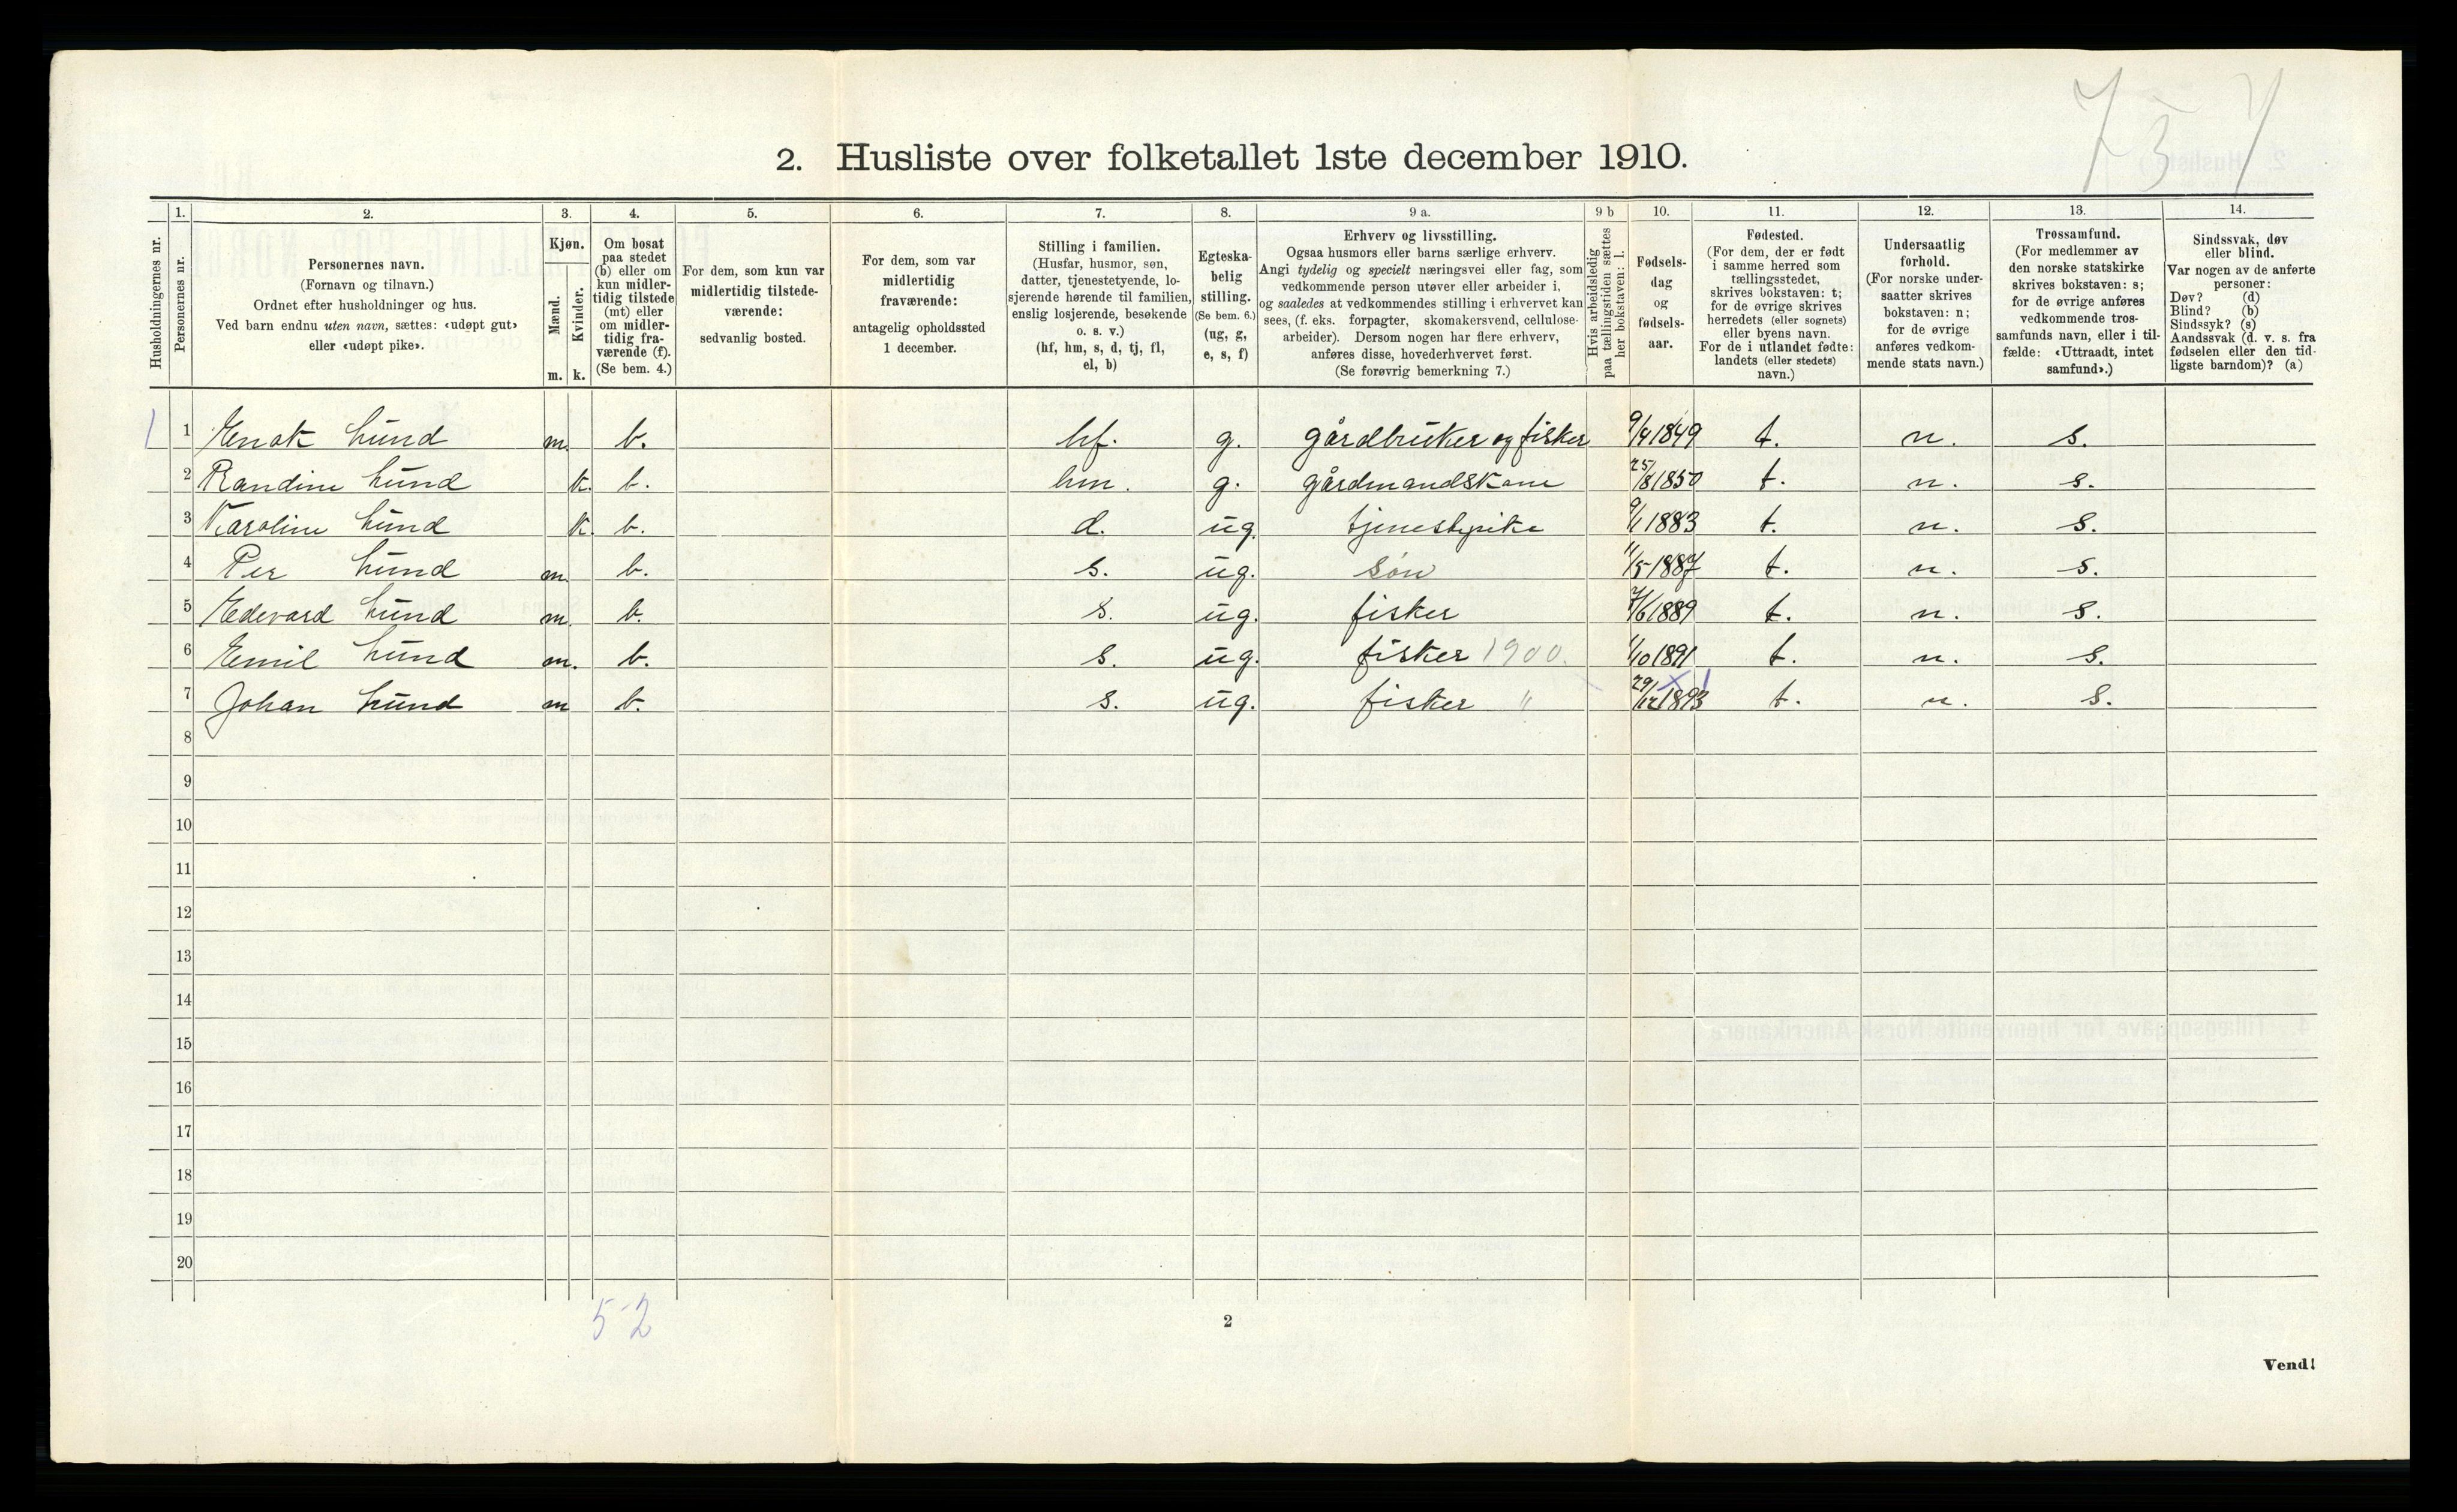 7 3 7
2. Husliste over folketallet 1ste december 1910.
Husholdningernes nr.
1.
Personernes nr.
2.
Personernes navn.
(Fornavn og tilnavn.)
Ordnet efter husholdninger og hus.
Ved barn endnu uten navn, sættes: «udøpt gut»
eller «udøpt pike».
3.
Kjøn.
Mænd.
Kvinder.
m. k.
4.
Om bosat
paa stedet
(b) eller om
kun midler-
tidig tilstede
(mt) eller
om midler-
tidig fra-
værende (f).
(Se bem. 4.)
5.
For dem, som kun var
midlertidig tilstede-
værende:
sedvanlig bosted.
6.
For dem, som var
midlertidig
fraværende:
antagelig opholdssted
1 december.
7.
Stilling i familien.
(Husfar, husmor, søn,
datter, tjenestetyende, lo-
sjerende hørende til familien,
enslig losjerende, besøkende
o. s. v.)
(hf, hm, s, d, tj, fl,
el, b)
8.
Egteska-
belig
stilling.
(Se bem. 6.)
(ug, g,
e, s, f)
9 a.
Erhverv og livsstilling.
Ogsaa husmors eller barns særlige erhverv.
Angi tydelig og specielt næringsvei eller fag, som
vedkommende person utøver eller arbeider i,
og saaledes at vedkommendes stilling i erhvervet kan
sees, (f. eks. forpagter, skomakersvend, cellulose-
arbeider). Dersom nogen har flere erhverv,
anføres disse, hovederhvervet først.
(Se forøvrig bemerkning 7.)
9 b
Hvis arbeidsledig
paa tællingstiden sættes
her bokstaven: l.
10.
Fødsels-
dag
og
fødsels-
aar.
11.
Fødested.
(For dem, der er født
i samme herred som
tællingsstedet,
skrives bokstaven: t;
for de øvrige skrives
herredets (eller sognets)
eller byens navn.
For de i utlandet fødte:
landets (eller stedets)
navn.)
12.
Undersaatlig
forhold.
(For norske under-
saatter skrives
bokstaven: n;
for de øvrige
anføres vedkom-
mende stats navn.)
13.
Trossamfund.
(For medlemmer av
den norske statskirke
skrives bokstaven: s;
for de øvrige anføres
vedkommende tros-
samfunds navn, eller i til-
fælde: «Uttraadt, intet
samfund».)
14.
Sindssvak, døv
eller blind.
Var nogen av de anførte
personer:
Døv? (d)
Blind? (b)
Sindssyk? (s)
Aandssvak (d. v. s. fra
fødselen eller den tid-
ligste barndom)? (a)
1 1 Enok Lund m. b. hf. g. gårdbruker og fisker 9/4 1849 t. n. s.
2 Randine Lund k. b. hm. g. gårdmandskone 25/8 1850 t. n. s.
3 Karoline Lund k. b. d. ug. tjenestpike 9/1 1883 t. n. s.
4 Per Lund m. b. s. ug. søn 11/5 1887 t. n. s.
5 Edevard Lund m. b. s. ug. fisker 7/6 1889 t. n. s.
6 Emil Lund m. b. s. ug. fisker 1900. 1/10 1891 t. n. s.
7 Johan Lund m b. s. ug. fisker " 29/12 1893 t. n. s.
8
9
10
11
12
13
14
15
16
17
18
19
20
5-2
2
Vend!